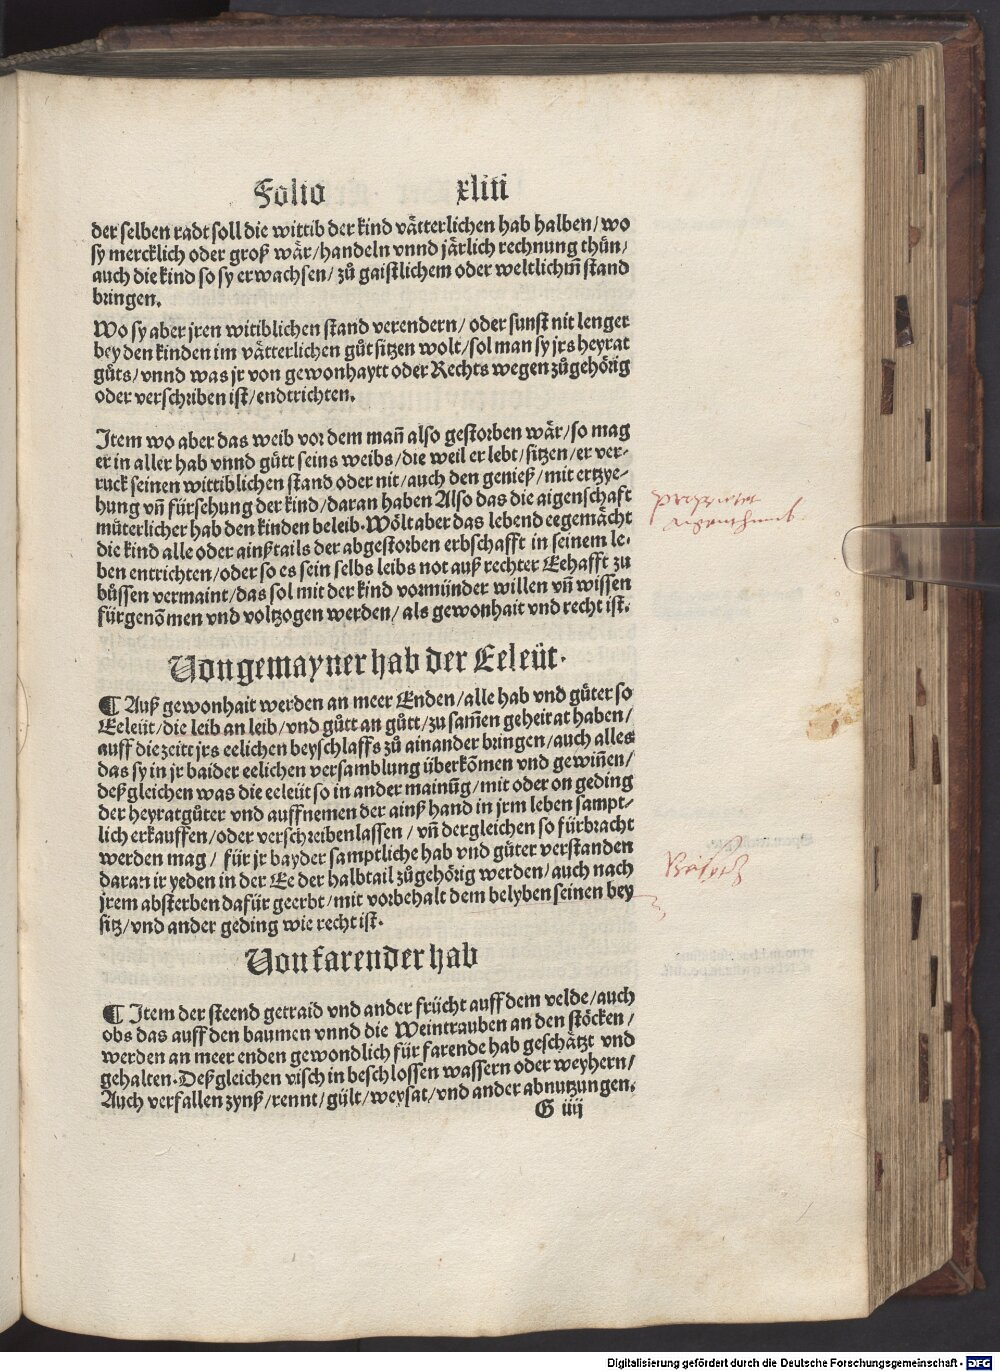 Folio xliii
der selben radt soll die wittib der kind vätterlichen hab halben/ wo
sy mercklich oder groß wär/ handeln vnnd järlich rechnung thůn/
auch die kind so sy erwachsen/ zů gaistlichem oder weltlichm̃ stand
bringen.
Wo sy aber jren witiblichen stand verendern/ oder sunst nit lenger
bey den kinden im vätterlichen gůt sitzen wolt/ sol man sy jrs heyrat
gůts/ vnnd was jr von gewonhaytt oder Rechts wegen zůgehörig
oder verschriben ist/ endtrichten.
Item wo aber das weib vor dem man̄ also gestorben wär/ so mag
er in aller hab vnnd gůtt seins weibs/ die weil er lebt/ sitzen/ er ver-
ruck seinen wittiblichen stand oder nit/ auch den genieß/ mit ertzye-
hung vn̄ fürsehung der kind/ daran haben Also das die aigenschaft
můterlicher hab den kinden beleib. Wölt aber das lebend eegemächt
die kind alle oder ainßtails der abgestorben erbschafft in seinem le-
ben entrichten/ oder so es sein selbs leibs not auß rechter Eehafft zu
büssen vermaint/ das sol mit der kind vormünder willen vn̄ wissen
fürgenōmen vnd voltzogen werden/ als gewonhait vnd recht ist.
Von gemayner hab der Eeleüt.
¶ Auß gewonhait werden an meer Enden/ alle hab vnd gůter so
Eeleüt/ die leib an leib/ vnd gůtt an gůtt/ zu sam̄en geheirat haben/
auff die zeitt jrs eelichen beyschlaffs zů ainander bringen/ auch alles
das sy in jr baider eelichen versamblung überkōmen vnd gewin̄en/
deßgleichen was die eeleüt so in ander mainūg/ mit oder on geding
der heyratgůter vnd auffnemen der ainß hand in jrm leben sampt-
lich erkauffen/ oder verschreiben lassen/ vn̄ dergleichen so fürbracht
werden mag/ für jr bayder samptliche hab vnd gůter verstanden
daran ir yeden in der Ee der halbtail zůgehörig werden/ auch nach
jrem absterben dafür geerbt/ mit vorbehalt dem belyben seinen bey
sitz/ vnd ander geding wie recht ist.
Von farender hab
¶ Item der steend getraid vnd ander frücht auff dem velde/ auch
obs das auff den baumen vnnd die Weintrauben an den stöcken/
werden an meer enden gewondlich für farende hab geschätzt vnd
gehalten. Deßgleichen visch in beschlossen wassern oder weyhern/
Auch verfallen zynß/ rennt/ gült/ weysat/ vnd ander abnutzungen.
G iiij
Digitalisierung gefördert durch die Deutsche Forschungsgemeinschaft - DFG